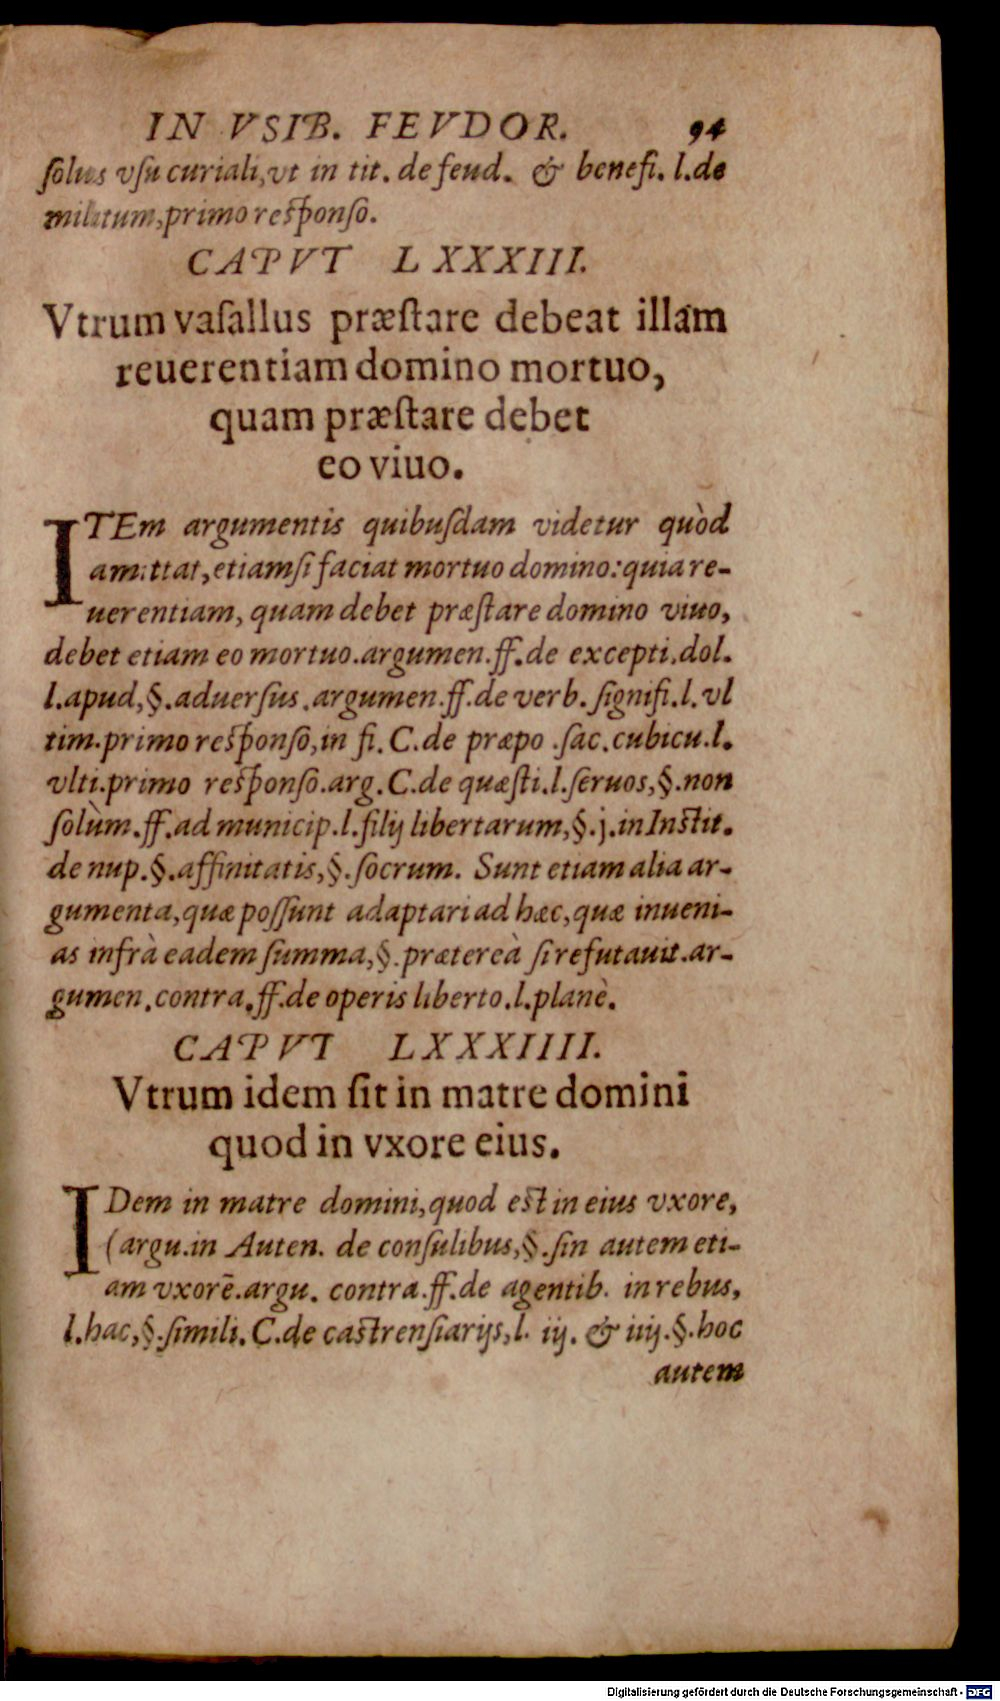 IN VSIB. FEVDOR. 94
ſolus vſu curiali,vt in tit. de feud. & benefi. l.de
militum,primo reſponſo.
CAPVT LXXXIII.
Vtrum vaſallus præſtare debeat illam
reuerentiam domino mortuo,
quam præſtare debet
eo viuo.
ITEm argumentis quibuſdam videtur quòd
amittat,etiamſi faciat mortuo domino:quia re-
uerentiam, quam debet præſtare domino viuo,
debet etiam eo mortuo.argumen.ff.de excepti.dol.
l.apud,§.aduerſus.argumen.ff.de verb.ſignifi.l.vl
tim.primo reſponſo,in fi.C.de præpo.ſac.cubicu.l.
vlti.primo reſponſo.arg.C.de quæſti.l.ſeruos,§.non
ſolùm.ff.ad municip.l.filij libertarum,§.j.in Inſtit.
de nup.§.affinitatis,§.ſocrum. Sunt etiam alia ar-
gumenta,quæ poſſunt adaptari ad hæc,quæ inueni-
as infrà eadem ſumma,§.prætereà ſi refutauit.ar-
gumen.contra.ff.de operis liberto.l.planè.
CAPVT LXXXIIII.
Vtrum idem ſit in matre domini
quod in vxore eius.
IDem in matre domini,quod eſt in eius vxore,
(argu.in Auten. de conſulibus,§.ſin autem eti-
am vxorē.argu. contra.ff.de agentib. in rebus,
l.hac,§.ſimili.C.de caſtrenſiarijs,l. iij. & iiij.§.hoc
autem
Digitalisierung gefördert durch die Deutsche Forschungsgemeinschaft - DFG